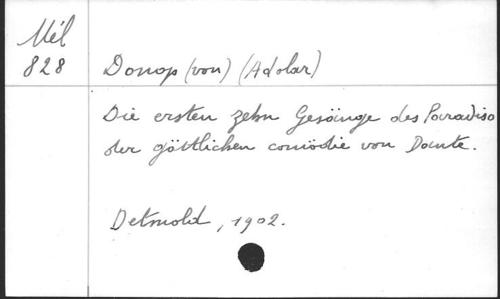 Mél
828
Donop (von) (Adolar)
Die ersten zehn Gesänge des Paradiso
der göttlichen comödie von Dante.
Detmold, 1902.